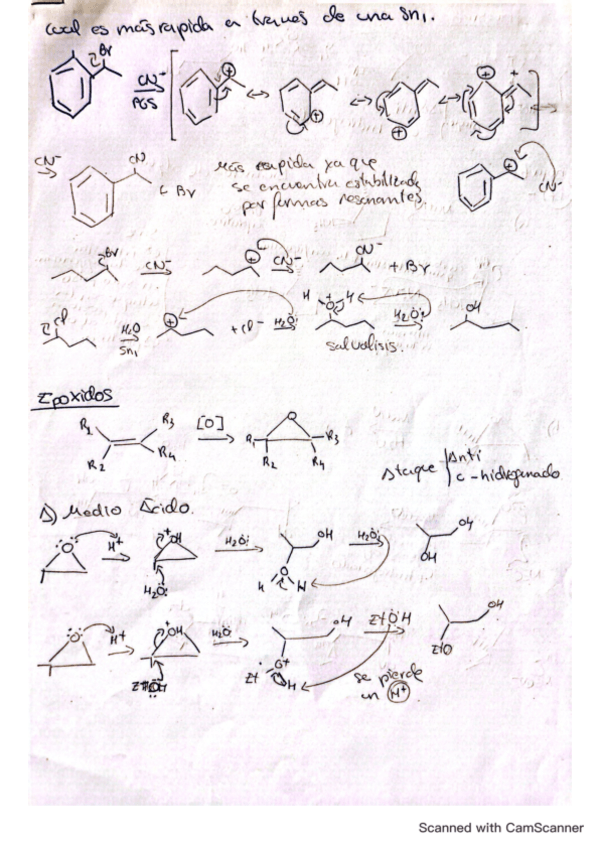 cual es más rapida a traves de una Sn1.
Br
CN⁻
PGS
CN⁻
CN
+ Br
Más rapida ya que
se encuentra estabilizada
por formas resonantes
CN⁻
Br
CN⁻
CN⁻
CN⁻
+ Br
Cl
H₂O
Sn1
+ Cl⁻
H₂O
H O H
H₂O
OH
solvolisis.
Epoxidos
R1 R3
R2 R4
[O]
O
R1 R3
R2 R4
Ataque Anti
C - hidrogenado
A) Medio Ácido.
O
H⁺
OH
H₂O
H₂O
OH
O
H H
H₂O
OH
OH
O
H⁺
OH
H₂O
OH
O⁺
Et H
EtOH
OH
EtO
se pierde
un H⁺
Scanned with CamScanner